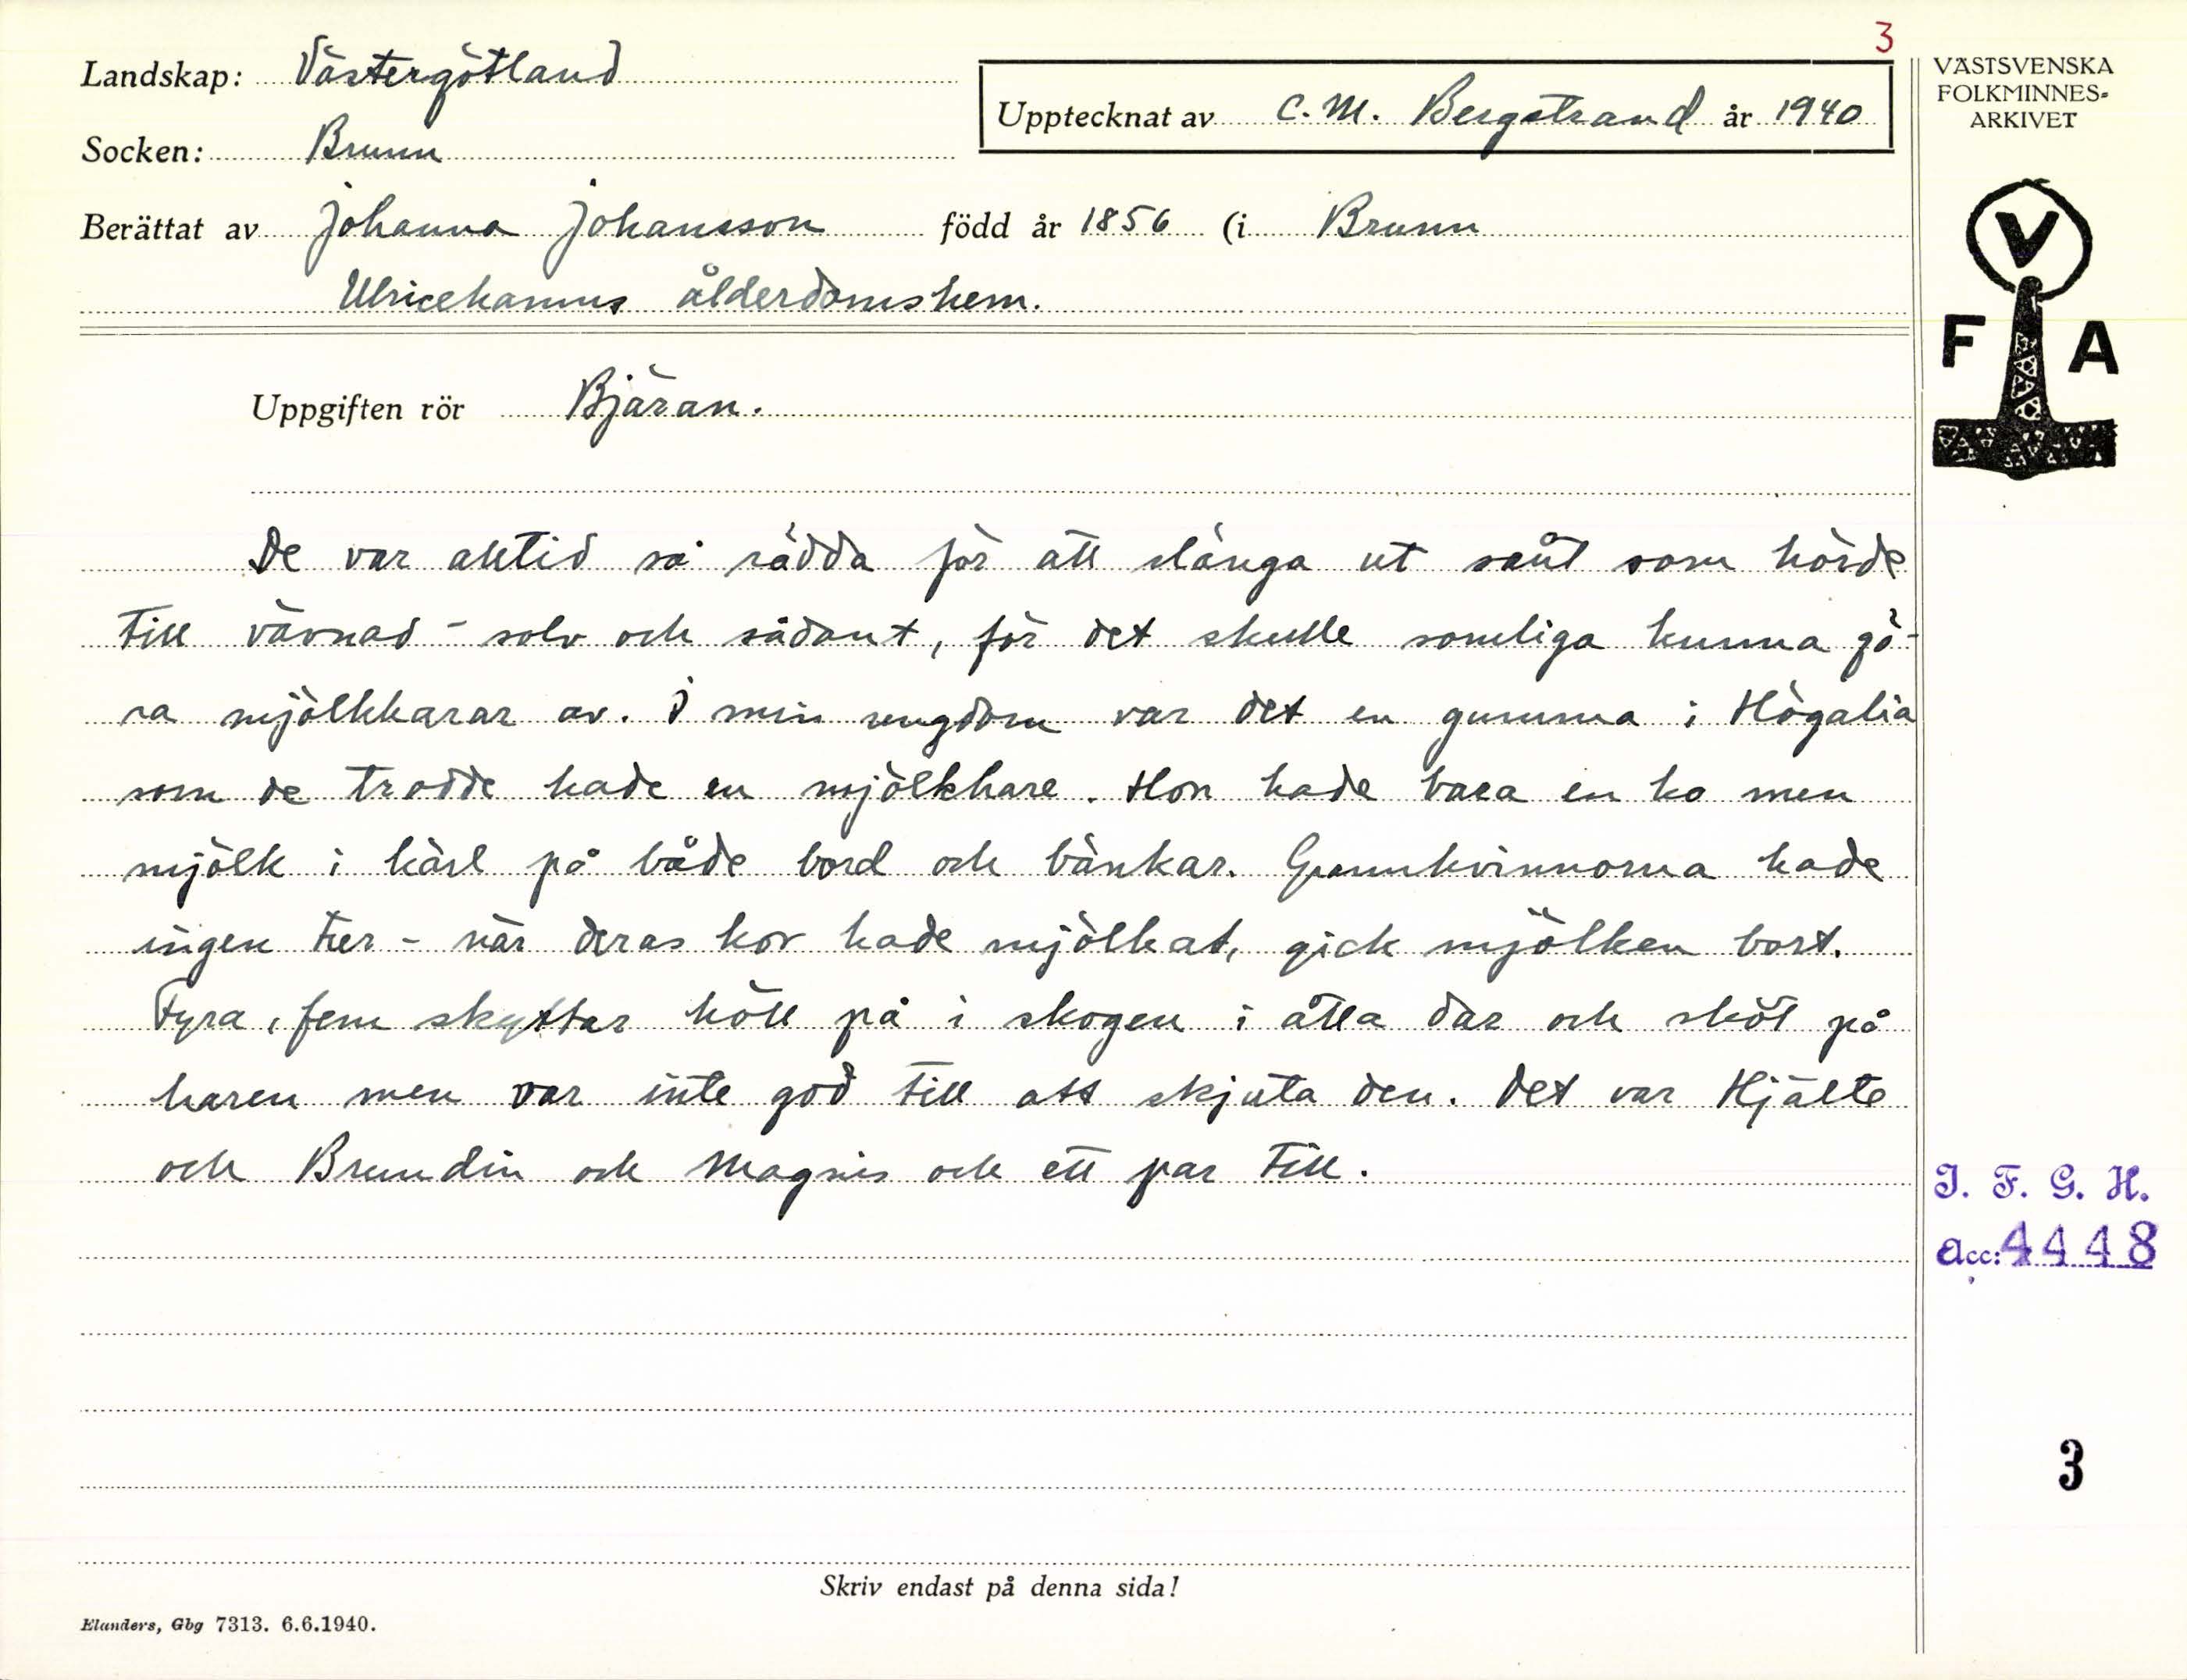 3
Landskap: Västergötland
Upptecknat av C. M. Bergstrand år 1940
VÄSTSVENSKA
FOLKMINNES-
ARKIVET
Socken: Brunn
Berättat av Johanna Johansson född år 1856 (i Brunn
Ulricehamns ålderdomshem.
V
F A
Uppgiften rör Bjäran.
De var alltid så rädda för att slänga ut sånt som hörde
till vävnad - solv och sådant, för det skulle somliga kunna gö-
ra mjölkharar av. I min ungdom var det en gumma i Högalia
som de trodde hade en mjölkhare. Hon hade bara en ko men
mjölk i kärl på både bord och bänkar. Grannkvinnorna hade
ingen ter - när deras kor hade mjölkat, gick mjölken bort.
Fyra, fem skyttar höll på i skogen i åtta dar och sköt på
haren men var inte god till att skjuta den. Det var Hjälte
och Brundin och Magnis och ett par till.
I. F. G. H.
Acc: 4448
3
Skriv endast på denna sida!
Elanders, Gbg 7313. 6.6.1940.